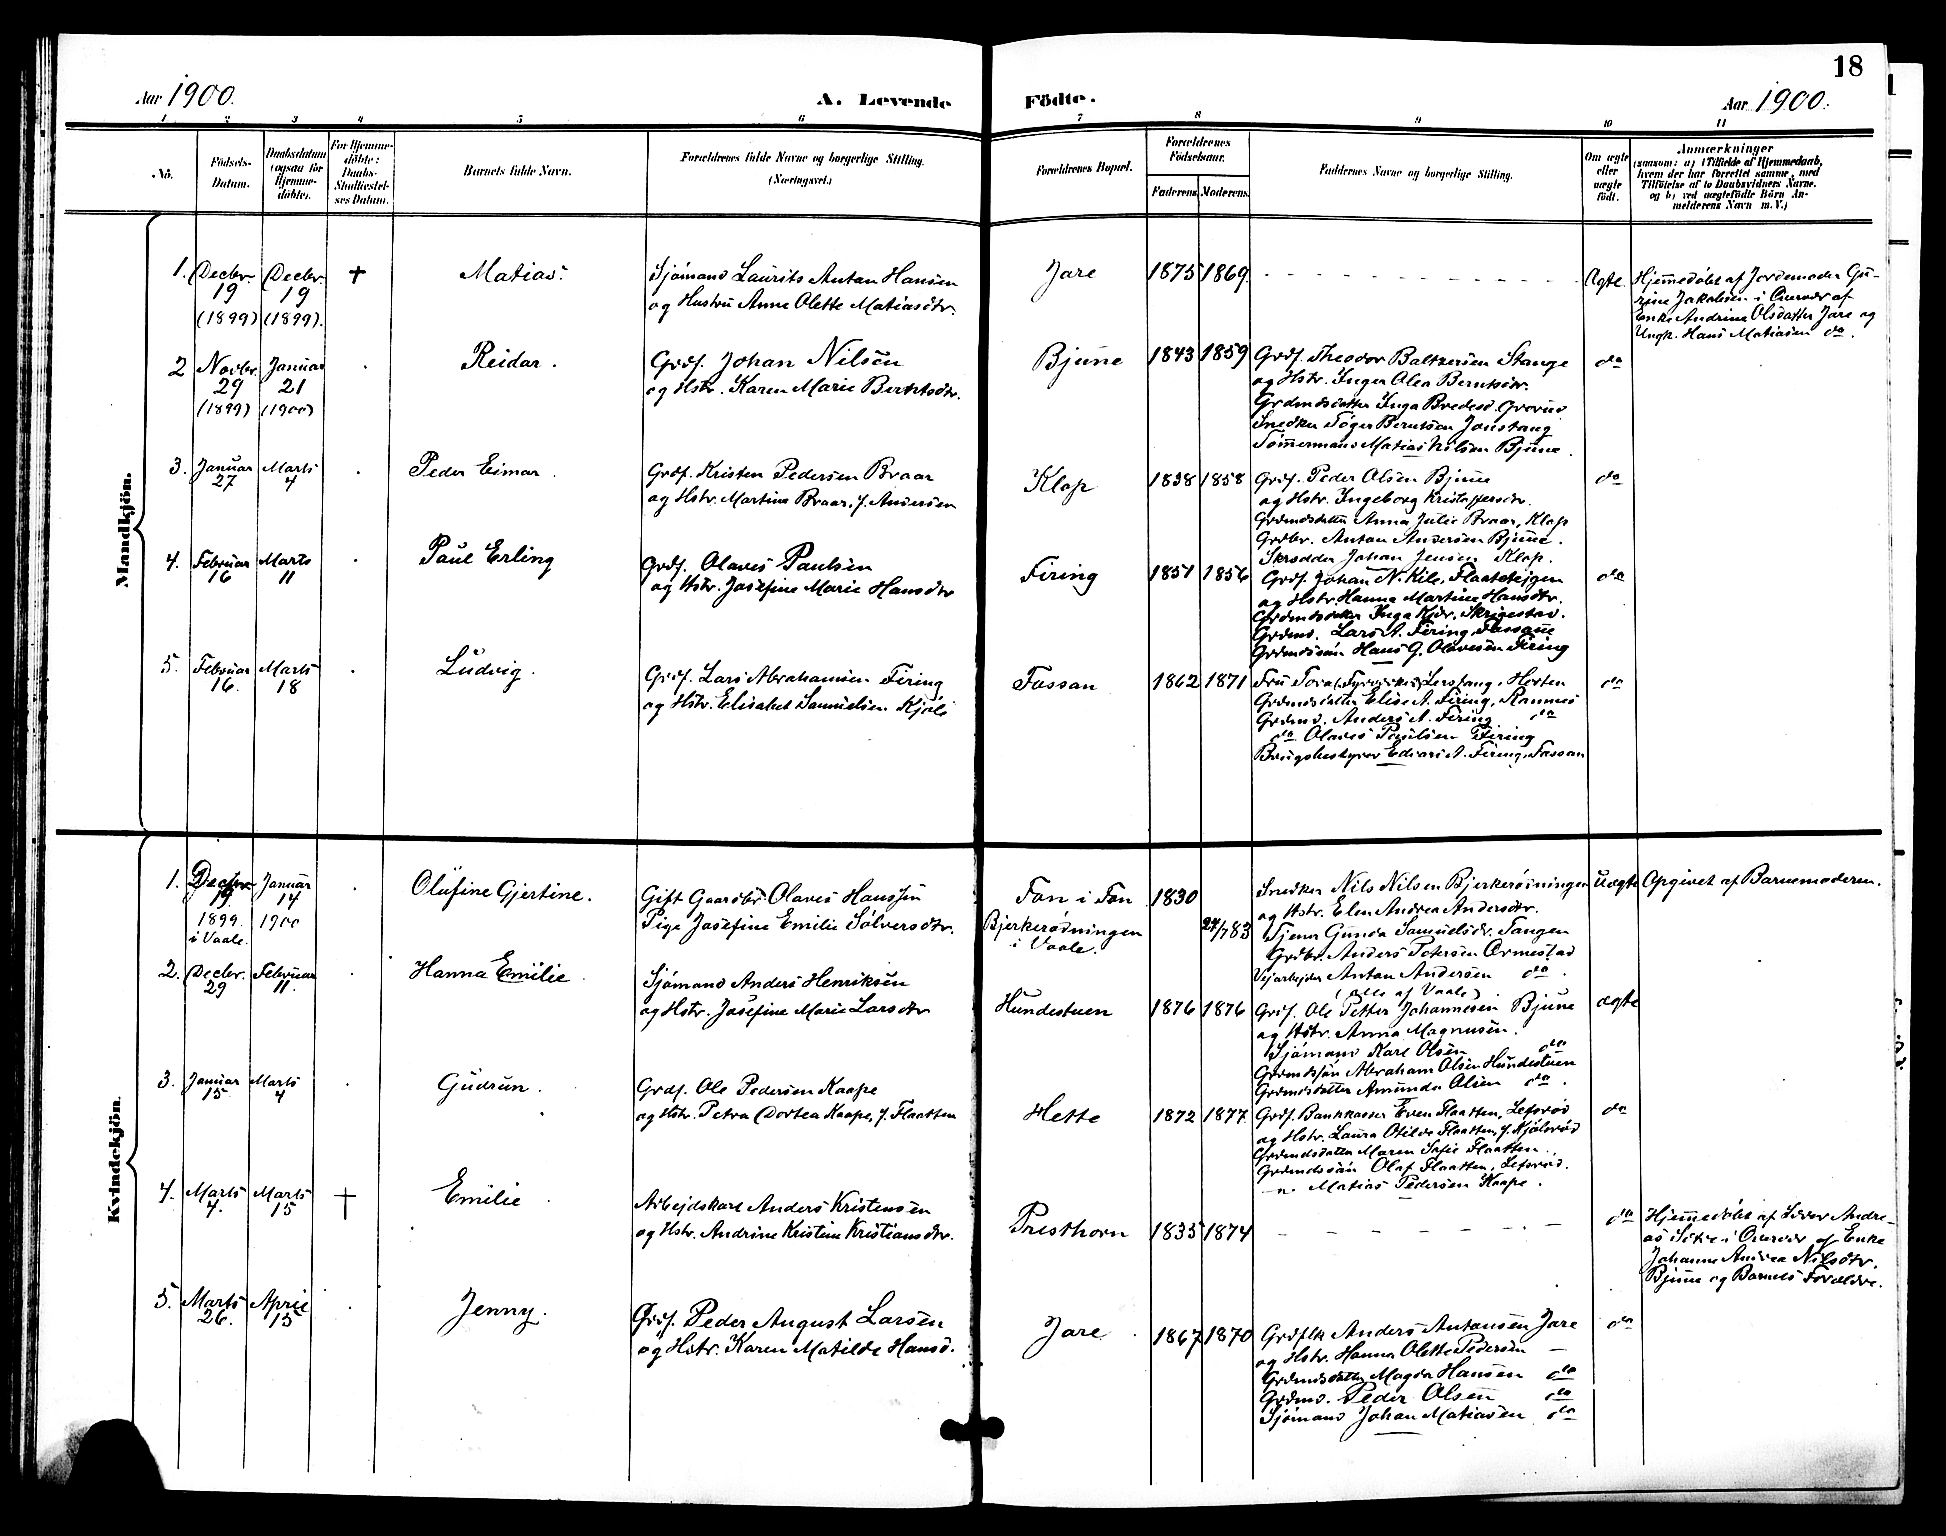 18
Aar 1900.
A. Levende Födte.
Aar 1900.
1 2 3 4 5 6 7 8 9 10 11
No.
Födsels-
Datum.
Daabsdatum
(ogsaa for
Hjemme-
döbte).
For Hjemme-
döbte:
Daabs-
Stadfæstel-
ses Datum.
Barnets fulde Navn.
Forældrenes fulde Navne og borgerlige Stilling.
(Næringsvei.)
Forældrenes Bopæl.
Forældrenes
Födselsaar.
Faderens.
Moderens.
Faddernes Navne og borgerlige Stilling.
Om ægte
eller
uægte
födt.
Anmærkninger
(saasom: a) i Tilfælde af Hjemmedaab,
hvem der har forrettet samme, med
Tilföielse af to Daabsvidners Navne.
og b) ved uægtefödte Börn An-
melderens Navn m. V.)
Mandkjön.
1. Decbr. 19 (1899) Decbr. 19 (1899). + Matias.
Sjømand Laurits Antan Hansen
og Hustru Anne Olette Matiasdtr.
Jare 1875 1869. Ægte
Hjemmedøbt af Jordemoder Gu-
rine Jakobsen i Overvær af
Enke Andrine Olsdatter Jare og
Ungk. Hans Matiasen do.
2 Novbr. 29 (1899) Januar 21 (1900) Reidar.
Grdf. Johan Nilsen
og Hstr. Karen Marie Berntsdtr.
Bjune 1843 1859
Grdf. Theodor Baltzersen Stange
og Hstr. Inger Olea Berntsdtr.
Grdmdsdatter Inga Bredesd.
Snedker Tøger Berntsen Jonstang
Tømmermand Matias Nilsen Bjune.
do
3. Januar 27 Marts 4 Peder Eimar.
Grdf. Kristen Pedersen Braar
og Hstr. Martine Braar, f. Andersen
Klop 1838 1858
Grdf. Peder Olsen Bjune
og Hstr. Ingeborg Kristoffersdr.
Grdmdsdatter Anna Julie Braar, Klop
Grdbr. Antan Andersen Bjune.
Skrædder Johan Jensen Klop.
do
4. Februar 16 Marts 11 Paul Erling
Grdf. Olaves Paulsen
og Hstr. Josefine Marie Hansdtr
Firing 1851 1856
Grdf. Johan N. Kile,
og Hstr. Hanna Martine Hansdtr.
Grdmdsdatter Inga Kjær, Skrigestad.
Grdmd. Lars A. Firing, Fassane
Grdmdssøn Hans G. Olavesen Firing
do
5. Februar 16. Marts 18 Ludvig.
Grdf. Lars Abrahamsen Firing
og Hstr. Elisabet Samuelsen Kjøle
Fassan 1862 1871
Fru Tora Horten
Grdmdsdatter Elise A. Firing, Ramnes
Grdmd. Anders A. Firing do
do Olaves Paulsen Firing
Brugsbestyrer Edvard A. Firing, Fassan
do
Kvindekjön.
1. Decbr. 19 1899. i Vaale. Januar 14 1900 Olufine Gjertine.
Gift Gaardbr. Olaves Hanssen
Pige Josefine Emilie Sølversdtr.
Fon i Fon
Bjerkerødningen
i Vaale.
1830 24/7 83
Snedker Nils Nilsen Bjerkerødningen
og Hstr. Elen Andrea Andersdtr.
Tjener Gunda Samuelsdr. Tangen
Grdbr. Anders Petersen Ormestad
Vejarbejder Antan Andersen do.
(alle af Vaale).
Uægte Opgivet af Barnemoderen.
2. Decbr. 29 Februar 11. Hanna Emilie
Sjømand Anders Henriksen
og Hstr. Josefine Marie Larsdtr
Hundestuen 1876 1876
Grdf. Ole Petter Johannesen Bjune
og Hstr. Anna Magnusen.
Sjømand Karl Olsen do
Grdmdssøn Abraham Olsen Hundestuen
Grdmdsdatter Amunda Olsen do.
ægte
3. Januar 15 Marts 4 Gudrun.
Grdf. Ole Pedersen Kaape
og Hstr. Petra Dortea Kaape, f. Flaatten
Hette 1872 1877
Grdf. Bankkasser Even Flaatten, Lefsrød
og Hstr. Laura Otilde Flaatten, f. Kjølsrød
Grdmdsdatter Maren Sofie Flaatten.
Grdmdssøn Olaf Flaatten, Lefsrød.
—n. Matias Pedersen Kaape.
do
4. Marts 7. Marts 15 + Emilie
Arbejdskarl Anders Kristensen
og Hstr. Andrine Kristine Kristiansdtr.
Presthorn 1835 1874
do
Hjemmedøbt af Andre-
as i Overvær af Enke
Johanne Andrea Nilsdtr.
Bjune og Barnets Forældre.
5. Marts 26. April 15 Jenny.
Grdf. Peder August Larsen
og Hstr. Karen Matilde Hansd.
Jare 1867 1870
Grdflk Anders Antansen Jare
og Hstr. Hanna Olette Pedersen —
Grdmdsdatter Magda Hansen do
Grdmd. Peder Olsen do
Sjømand Johan Matiasen do
do